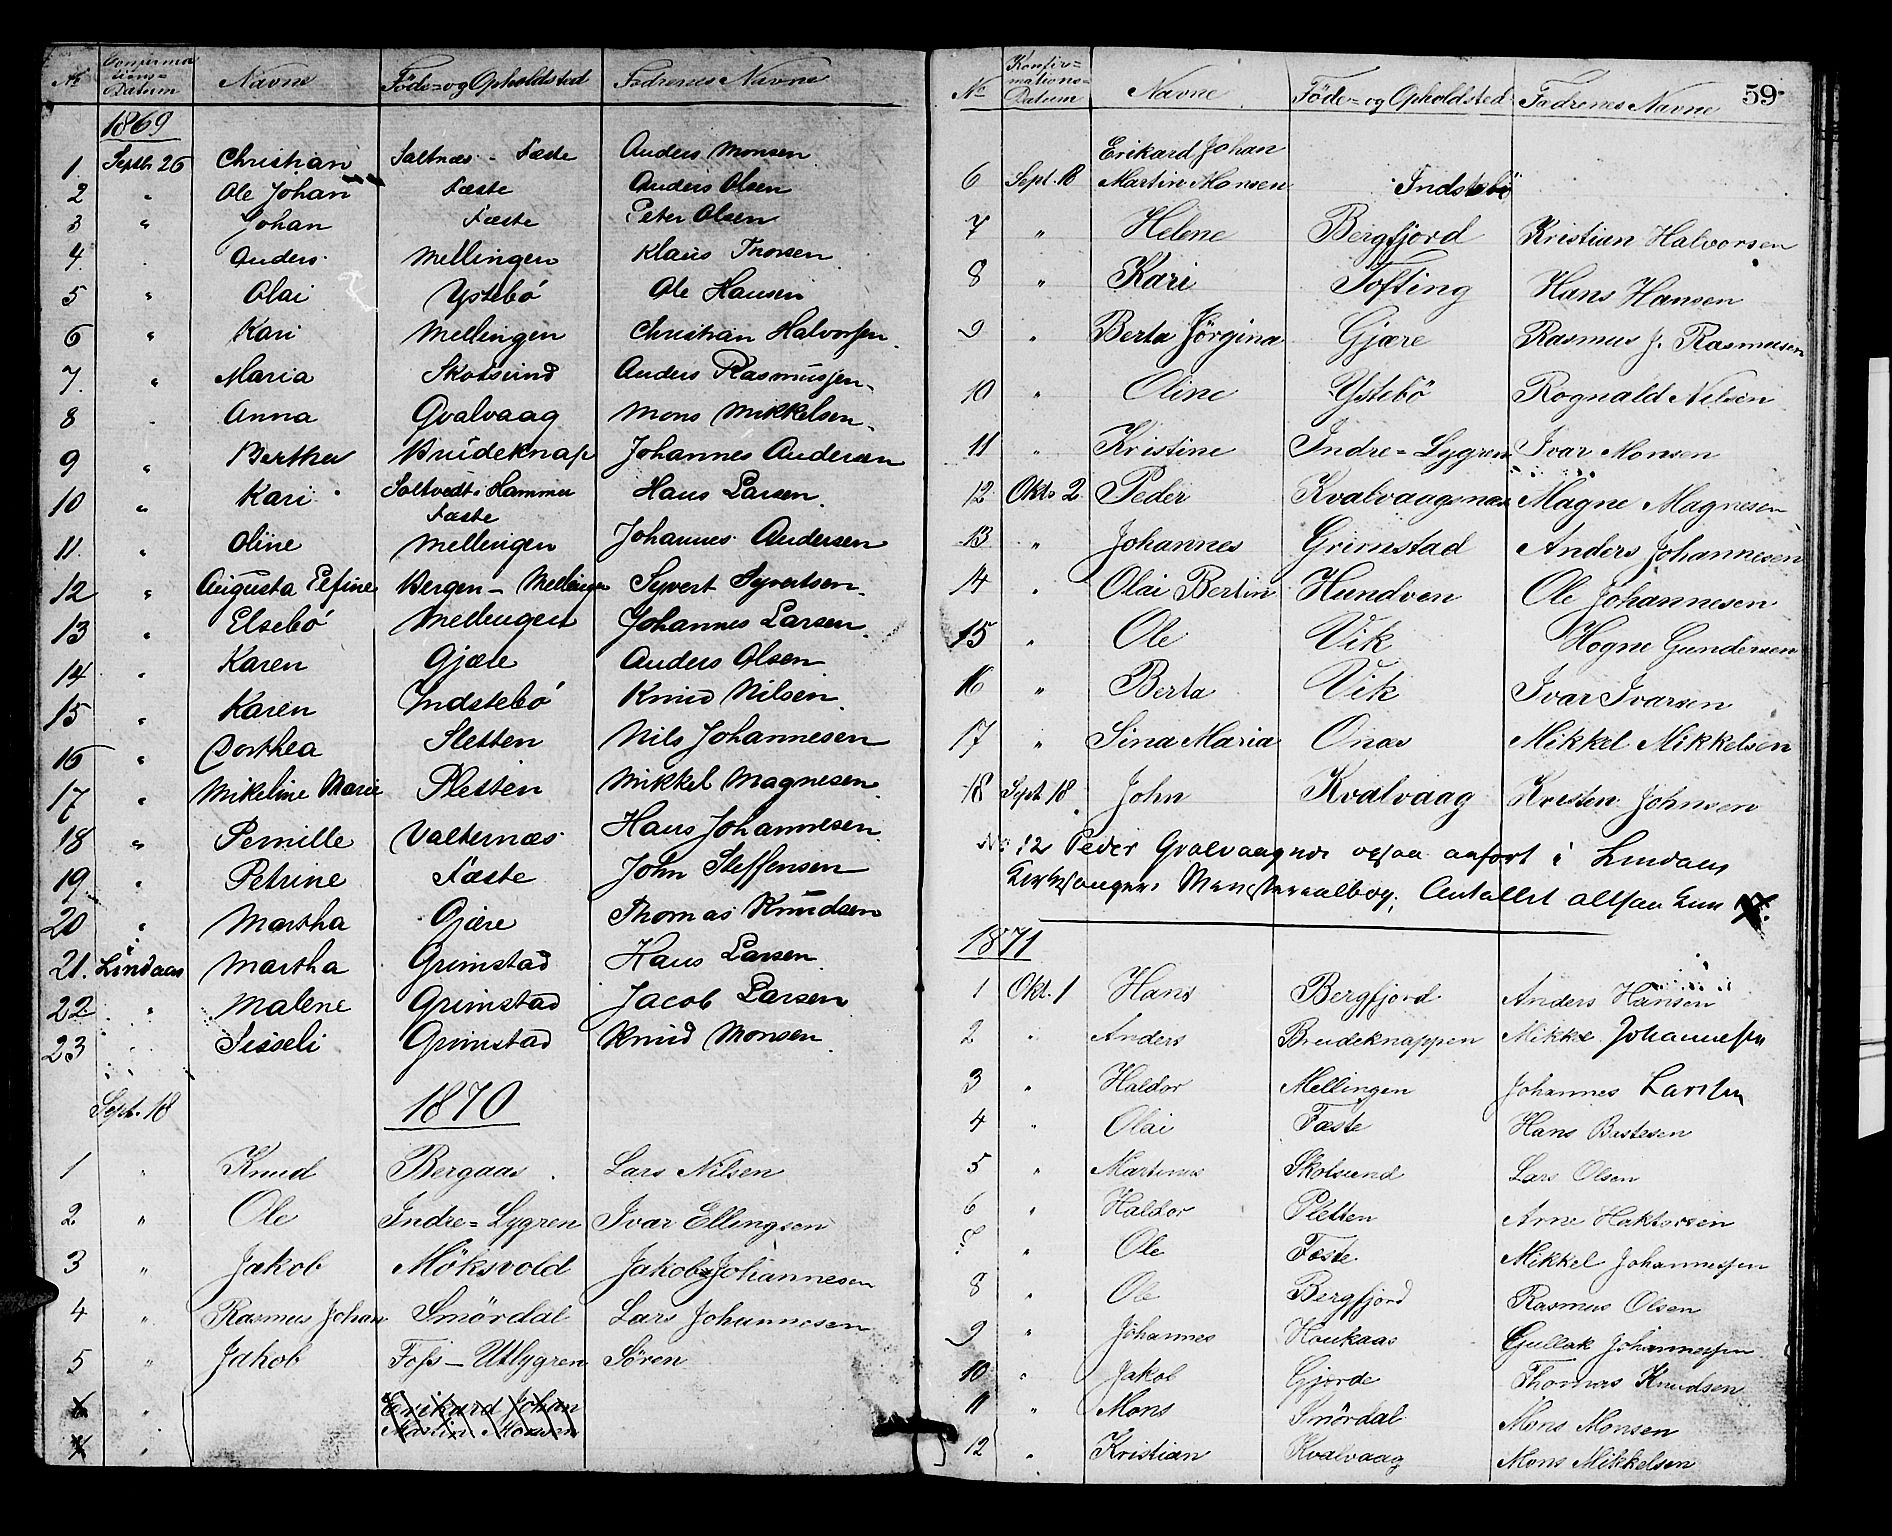 No Confirmations-Datum Navne Föde- og Opholdsted Fædrenes Navne
1869
1. Septb. 26 Christian Saltnæs - Fæste Anders Monsen
2 " Ole Johan Fæste Anders Olsen
3 " Johan Fæste Peter Olsen
4. Anders Mellingen Klaus Thorsen
5 " Olai Ystebö Ole Hansen
6 " Kari Mellingen Christian Halvorsen
7. " Maria Skotsund Anders Rasmussen
8 Anna Qvalvaag Mons Mikkelsen
9 " Berthe Brudeknap Johannes Andersen
10 " Kari Saltvedt i Hammer Hans Larsen
Fæste
11. " Oline Mellingen Johannes Andersen
12 " Augusta Elfine Bergen - Mellingen Syvert Syvertsen
13 " Elsebö Mellingen Johannes Larsen
14 " Karen Gjære Anders Olsen
15 " Karen Indstebö Knud Nilsen
16 " Dorthea Sletten Nils Johannesen
17 " Mikeline Marie Pletten Mikkel Magnesen
18 " Pernille Valternæs Hans Johannesen
19. " Petrine Fæste John Steffensen
20 " Martha Gjære Thomas Knudsen
21. Lindaas Martha Grimstad Hans Larsen
22 " Malene Grimstad Jacob Larsen
23 Sisseli Grimstad Knud Monsen
Sept. 18 1870
1 " Knud Bergaas Lars Nilsen
2 " Ole Indre-Lygren Ivar Ellingsen
3 " Jakob Möksvold Jakob Johannesen
4 " Rasmus Johan Smördal Lars Johannesen
5 " Jakob Foss - Utlygren Sören
6 " Erikard Johan
Martin Monsen
No Konfirmations-Datum Navne Föde- og Opholdsted Fædrenes Navne 59
Erikard Johan
6 Sept. 18 Martin Monsen Indstebö
7 " Helene Bergfjord Kristian Halvorsen
8 " Kari Tofting Hans Hansen
9 " Berta Jörgina Gjære Rasmus J. Rasmusen
10 " Oline Ystebö Rognald Nilsen
11 " Kristine Indre-Lygren Ivar Monsen
12 Okt. 2 Peder Kvalvaagsnæs Magne Magnesen
13 " Johannes Grimstad Anders Johannesen
14 " Olai Bertin Hundven Ole Johannesen
15 " Ole Vik Hogne Gundersen
16 " Berta Vik Ivar Ivarsen
17 " Sina Maria Onas Mikkel Mikkelsen
18 Sept. 18 John Kvalvaag Kristen Johnsen
No 12 Peder Qvalvaagnæs ogsaa anfört i Lindaas
Kirkesongers Ministerialbog, Antallet altsaa kun
1871
1 Okt. 1 Hans Bergfjord Anders Hansen
2 " Anders Brudeknappen Mikkel Johannessen
3 " Haldor Mellingen Johannes Larsen
4 " Olai Fæste Hans Bertesen
5 " Martinus Skotsund Lars Olsen
6 " Haldor Pletten Arne Haktorsen
7 " Ole Fæste Mikkel Johannessen
8 " Ole Bergfjord Rasmus Olsen
9 " Johannes Haukaas Gullak Johannessen
10 " Jakob Gjerde Thomas Knudsen
11 " Mons Smördal Mons Monsen
12 " Kristian Kvalvaag Mons Mikkelsen